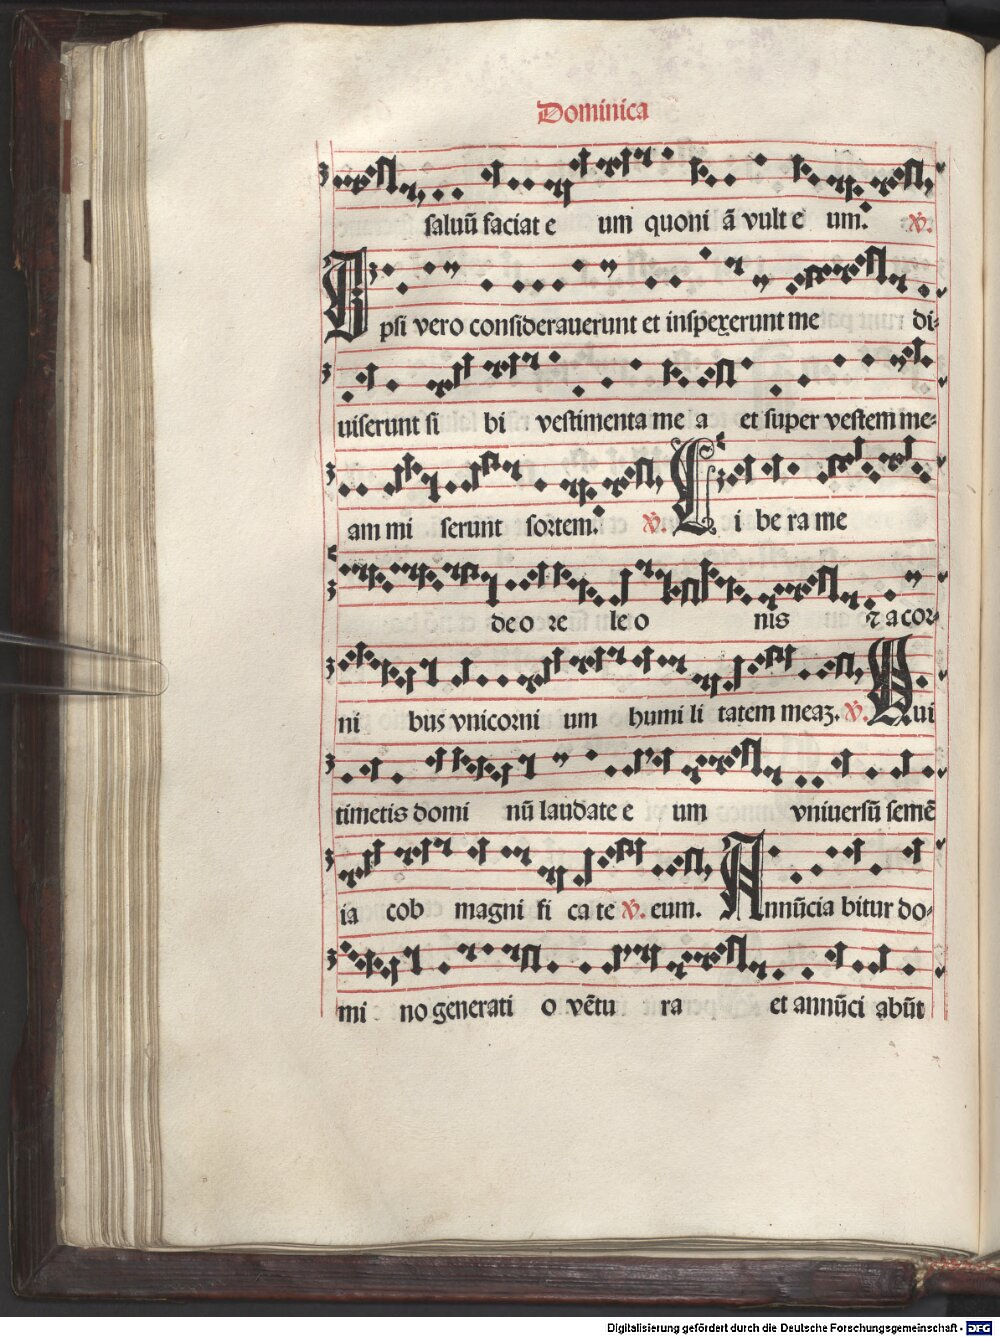 Dominica
saluū faciat e um quoni ā vult e um. ℣.
Ipsi vero considerauerunt et inspexerunt me di-
uiserunt si bi vestimenta me a et super vestem me-
am mi serunt sortem. ℣. Li be ra me
de o re le o nis ⁊ a cor-
ni bus vnicorni um humi li tatem meaꝫ. ℣. Qui
timetis domi nū laudate e um vniuersū semē
ia cob magni fi ca te ℣. eum. Annūcia bitur do-
mi no generati o vētu ra et annūci abūt
Digitalisierung gefördert durch die Deutsche Forschungsgemeinschaft - DFG